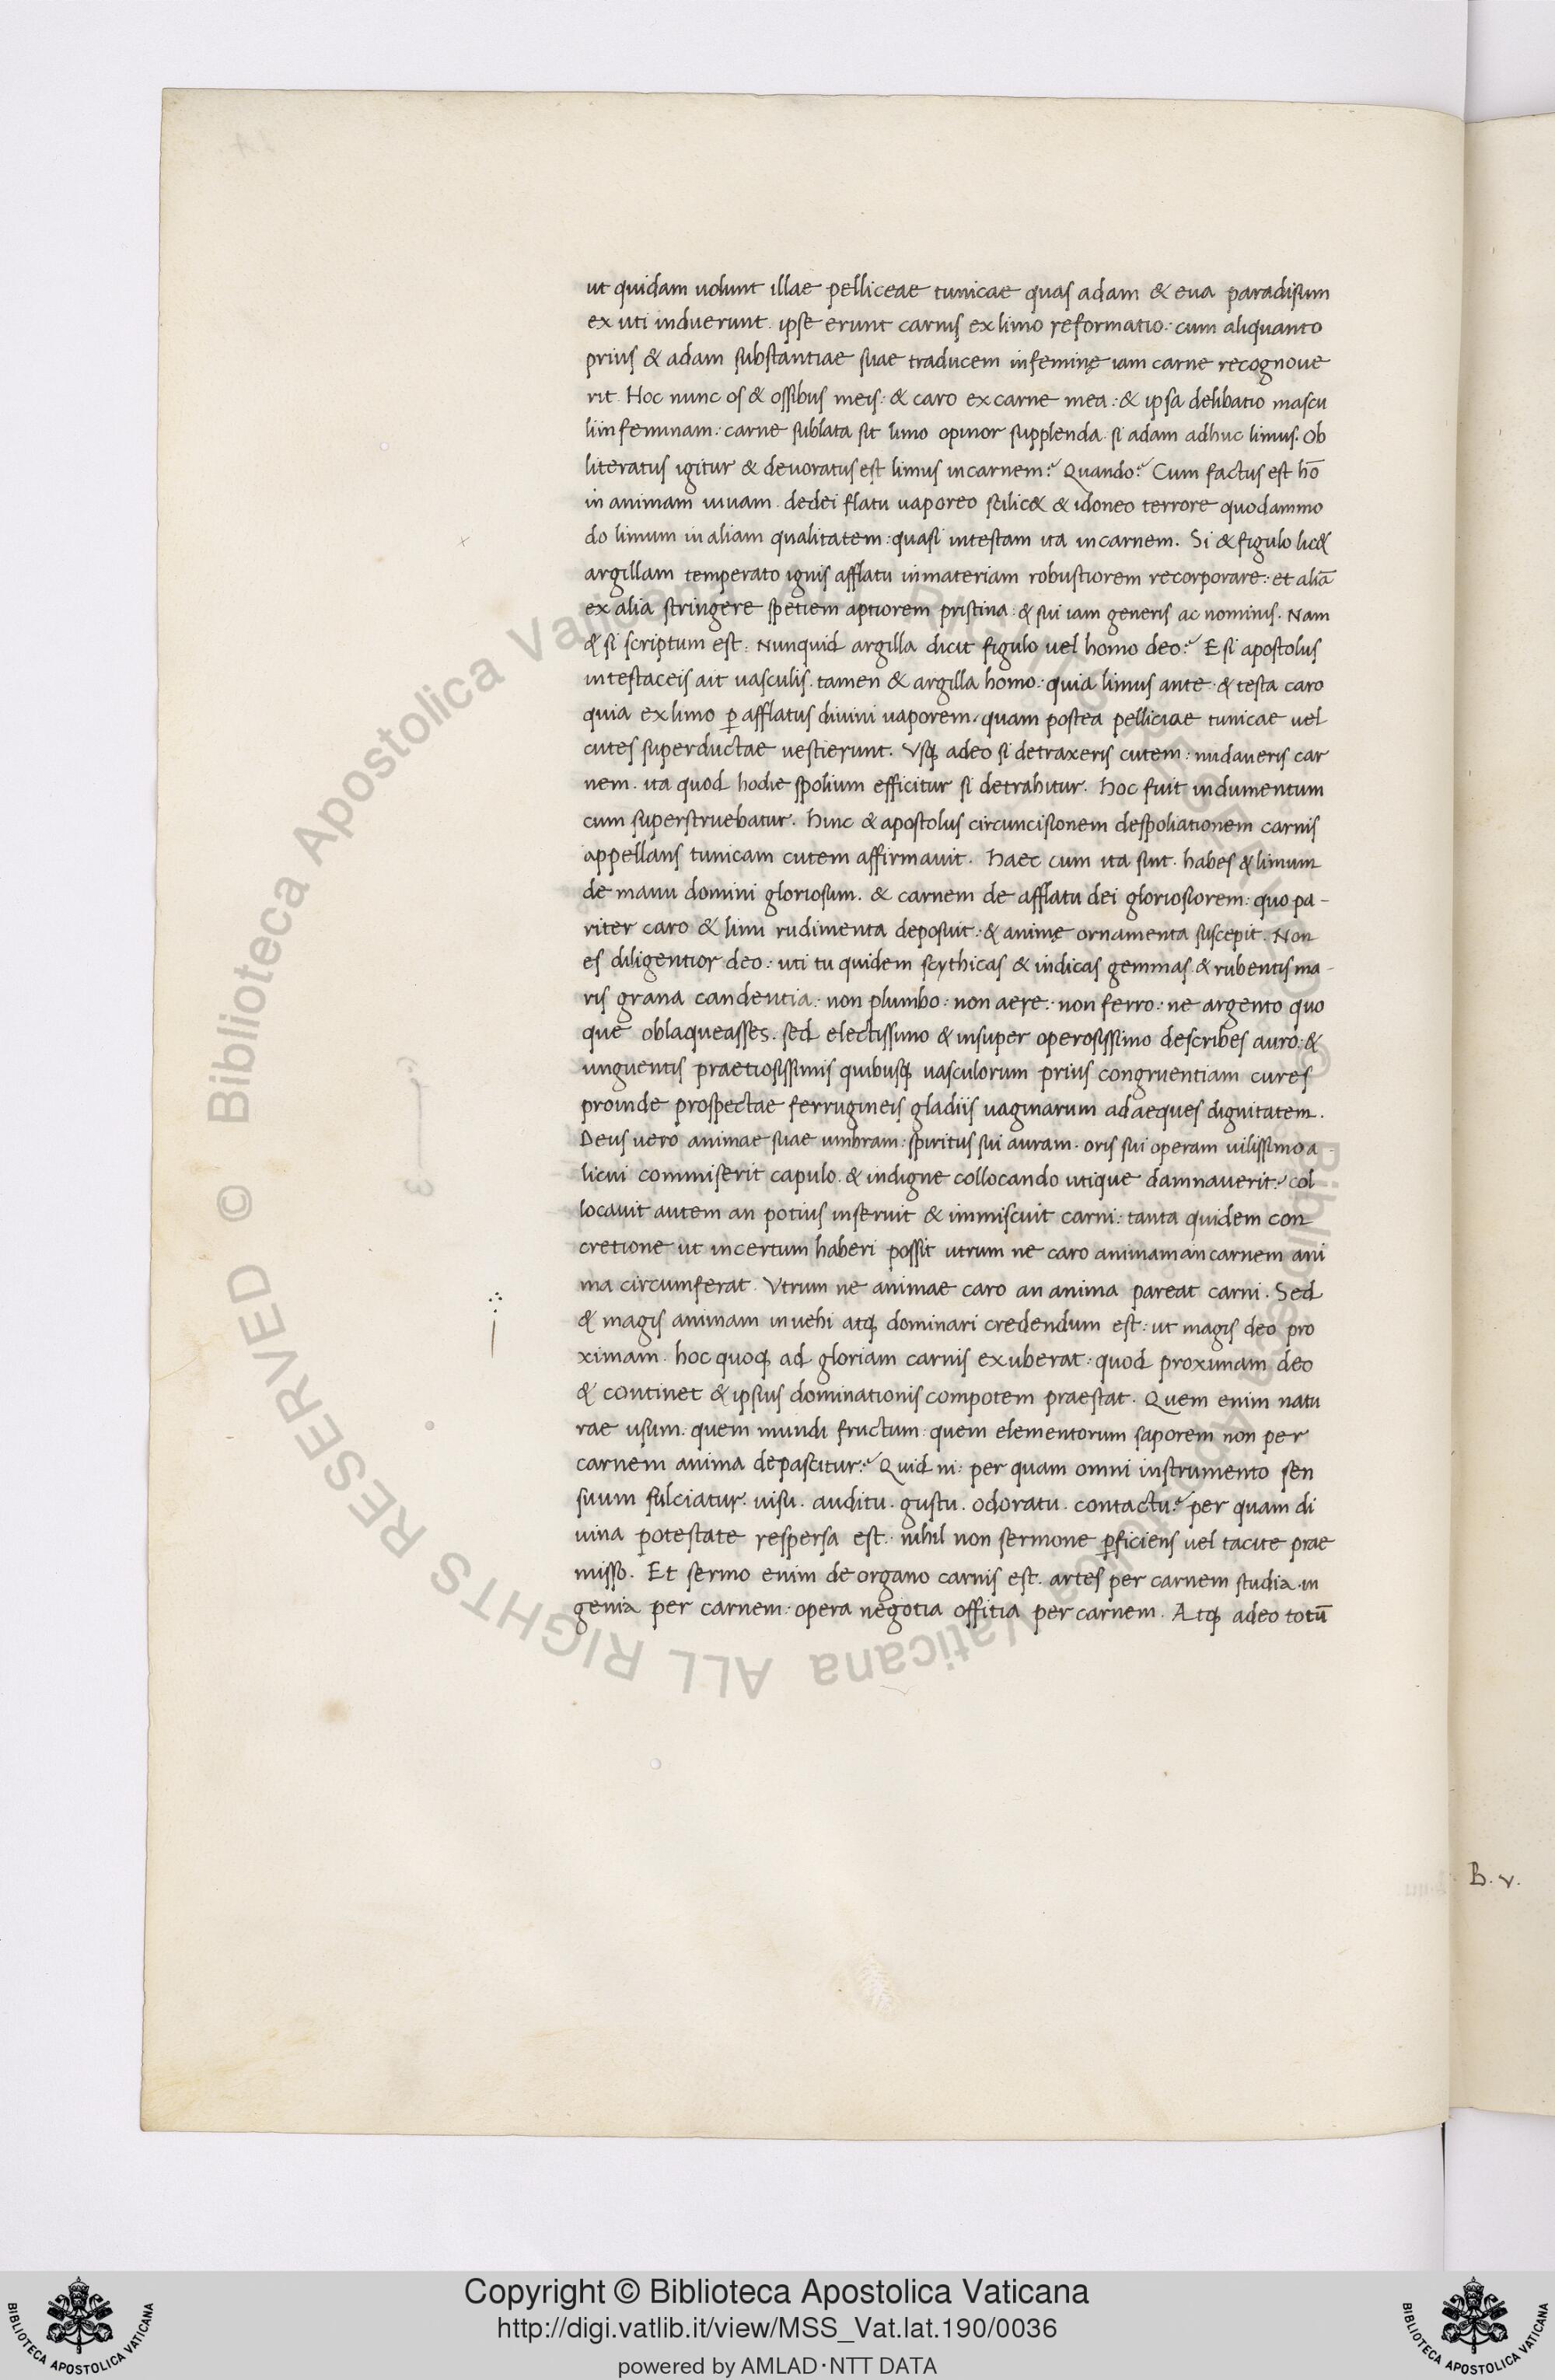 ut quidam uolunt illae pelliceae tunicae quas adam & eua paradisum
ex uti induerunt. ipse erunt carnis ex limo reformatio: cum aliquanto
prius & adam substantiae suae traducem infeminę iam carne recognoue
rit. Hoc nunc os & ossibus meis: & caro ex carne mea: & ipsa delibatio mascu
liinfeminam: carne sublata sit limo opinor supplenda. si adam adhuc limus. Ob
literatus igitur & deuoratus est limus incarnem? Quando? Cum factus est hō
in animam uiuam. dedei flatu uaporeo scilic& & idoneo terrore quodammo
do limum in aliam qualitatem: quasi intestam ita incarnem. Si & figulo lic&
argillam temperato ignis afflatu inmateriam robustiorem recorporare: et aliā
ex alia stringere spetiem aptiorem pristina: & sui iam generis ac nominis. Nam
& si scriptum est: Nunquid argilla dicit figulo uel homo deo? E si apostolus
intestaceis ait uasculis. tamen & argilla homo: quia limus ante: & testa caro
quia ex limo ꝑ afflatus diuini uaporem. quam postea pelliciae tunicae uel
cutes superductae uestierunt. Vsqꝫ adeo si detraxeris cutem: nudaueris car
nem. ita quod hodie spolium efficitur si detrahitur. hoc fuit indumentum
cum superstruebatur. hinc & apostolus circuncisionem despoliationem carnis
appellans tunicam cutem affirmauit. haec cum ita sint. habes & limum
de manu domini gloriosum. & carnem de afflatu dei gloriosiorem: quo pa-
riter caro & limi rudimenta deposuit: & animę ornamenta suscepit. Non
es diligentior deo: uti tu quidem scythicas & indicas gemmas & rubentis ma-
ris grana candentia: non plumbo: non aere: non ferro: ne argento quo
que oblaqueasses. sed electissimo & insuper operosissimo describes auro: &
unguentis praetiosissimis quibusqꝫ uasculorum prius congruentiam cures
proinde prospectae ferrugineis gladiis uaginarum adaeques dignitatem.
Deus uero animae suae umbram: spiritus sui auram. oris sui operam uilissimo a
licui commiserit capulo. & indigne collocando utique damnauerit? col
locauit autem an potius inseruit & immiscuit carni: tanta quidem con
cretione ut incertum haberi possit utrum ne caro animam an carnem ani
ma circumferat. Vtrum ne animae caro an anima pareat carni. Sed
& magis animam inuehi atqꝫ dominari credendum est: ut magis deo pro
ximam. hoc quoqꝫ ad gloriam carnis exuberat: quod proximam deo
& continet & ipsius dominationis compotem praestat. Quem enim natu
rae usum: quem mundi fructum: quem elementorum saporem non per
carnem anima depascitur? Quid ni: per quam omni instrumento sen
suum fulciatur. uisu. auditu. gustu. odoratu. contactu? per quam di
uina potestate respersa est. nihil non sermone ꝑficiens uel tacite prae
misso. Et sermo enim de organo carnis est. artes per carnem studia. in
genia per carnem: opera negotia offitia per carnem. Atqꝫ adeo totū
B. v.
© Biblioteca Apostolica Vaticana ALL RIGHTS RESERVED
Copyright © Biblioteca Apostolica Vaticana
http://digi.vatlib.it/view/MSS_Vat.lat.190/0036
powered by AMLAD·NTT DATA
BIBLIOTECA APOSTOLICA VATICANA
BIBLIOTECA APOSTOLICA VATICANA